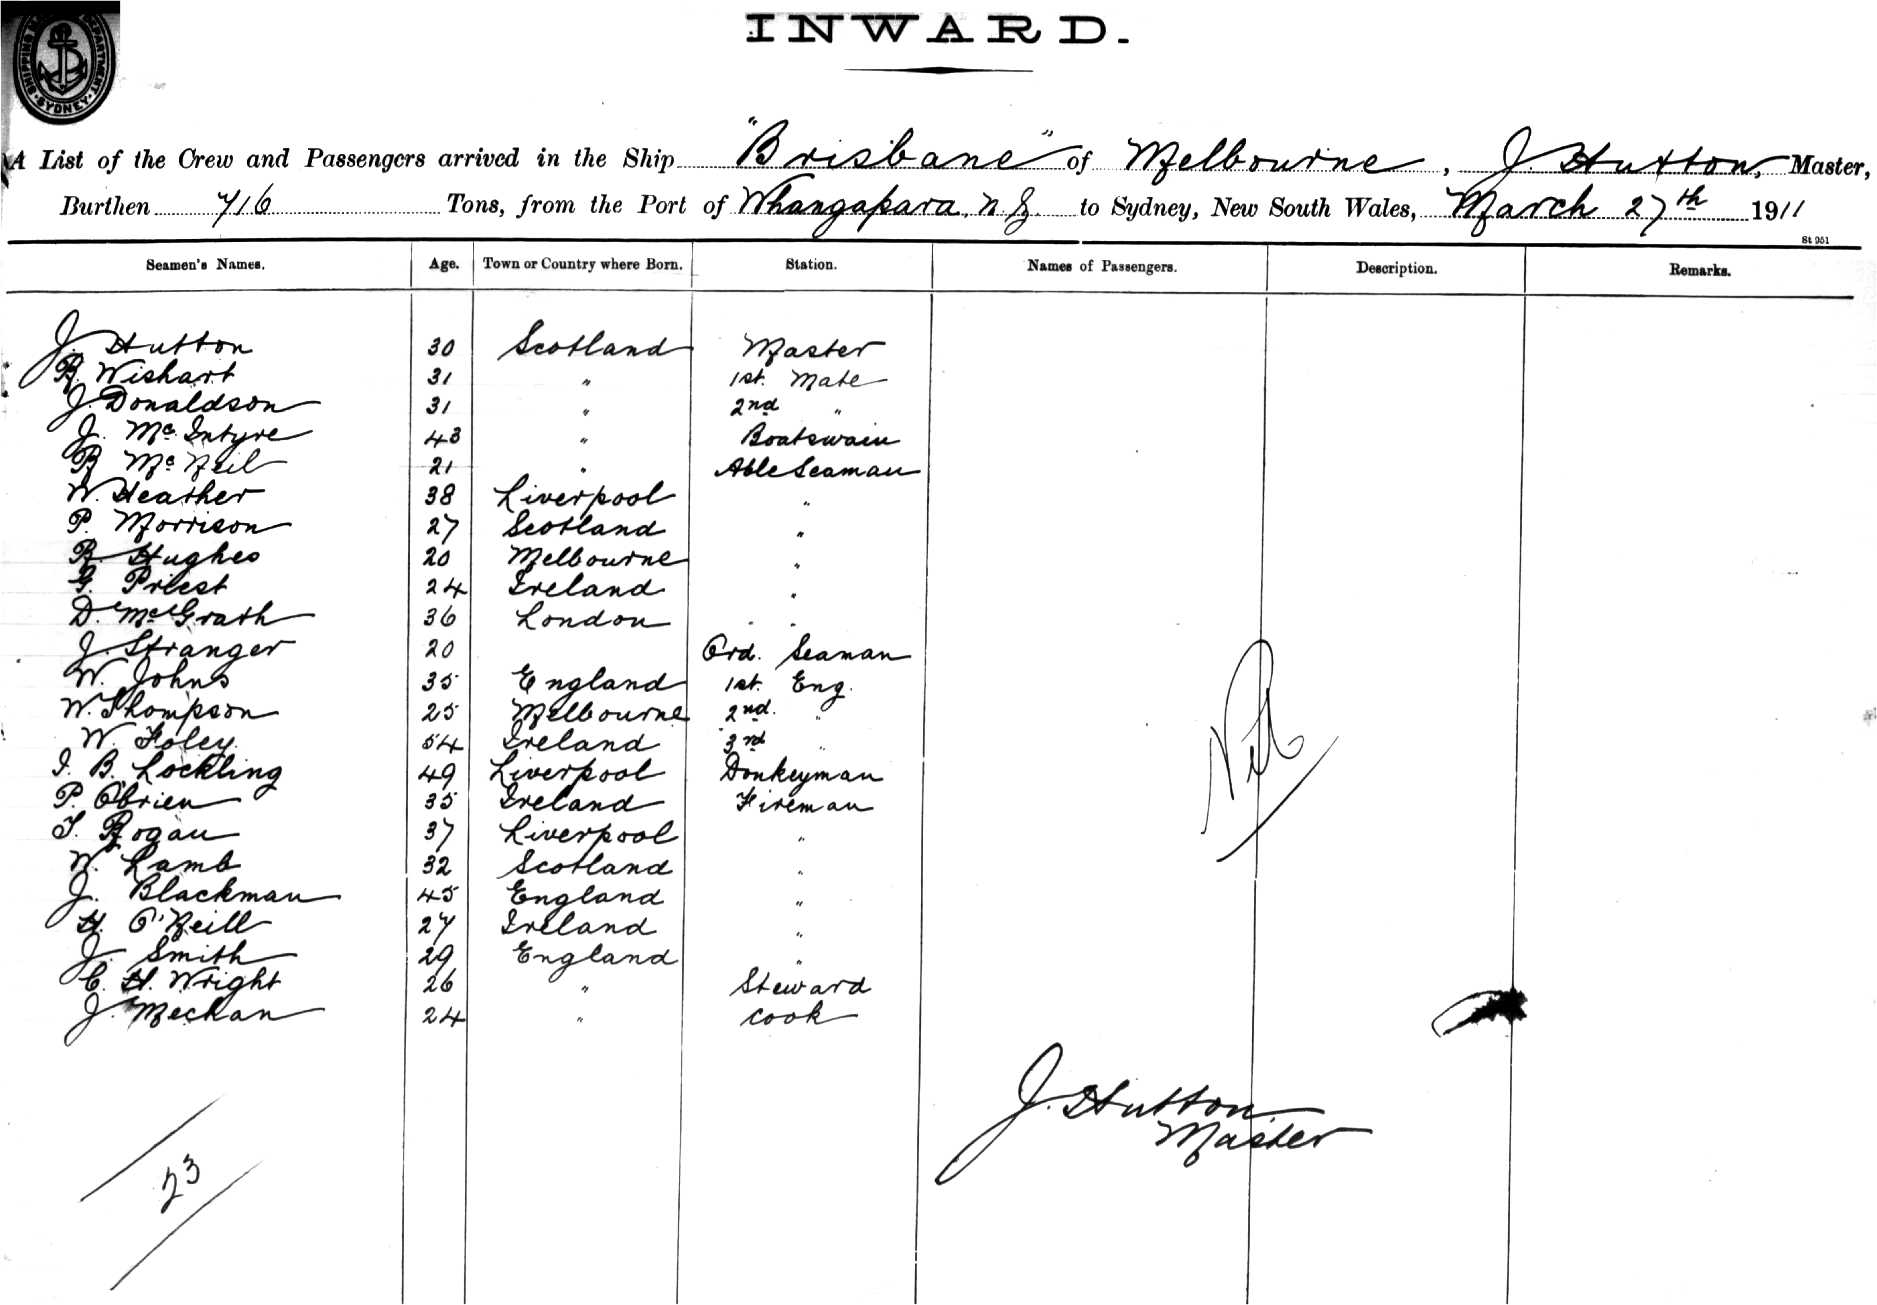 SHIPPING DEPARTMENT SYDNEY
INWARD.
A List of the Crew and Passengers arrived in the Ship "Brisbane" of Melbourne, J. Hutton, Master,
Burthen 716 Tons, from the Port of Whangapara N.Z. to Sydney, New South Wales, March 27th 1911
St 951
Seamen's Names. Age. Town or Country where Born. Station. Names of Passengers. Description. Remarks.
J. Hutton 30 Scotland Master
R. Wishart 31 " 1st. Mate
J. Donaldson 31 " 2nd "
J. McIntyre 43 " Boatswain
R McNeil 21 " Able Seaman
W. Heather 38 Liverpool "
P. Morrison 27 Scotland "
R. Hughes 20 Melbourne "
G. Priest 24 Ireland "
D. McGrath 36 London " "
J. Stranger 20 Ord. Seaman
W. Johns 35 England 1st. Eng.
W. Thompson 25 Melbourne 2nd. "
W. Foley 54 Ireland 3rd "
I. B. Lockling 49 Liverpool Donkeyman
P. O'Brien 35 Ireland Fireman
T. Rogan 37 Liverpool "
W. Lamb 32 Scotland "
J. Blackman 45 England "
H. O'Neill 27 Ireland "
J. Smith 29 England "
C. H. Wright 26 " Steward
J. Mechan 24 " Cook
Nil
J. Hutton
Master
23